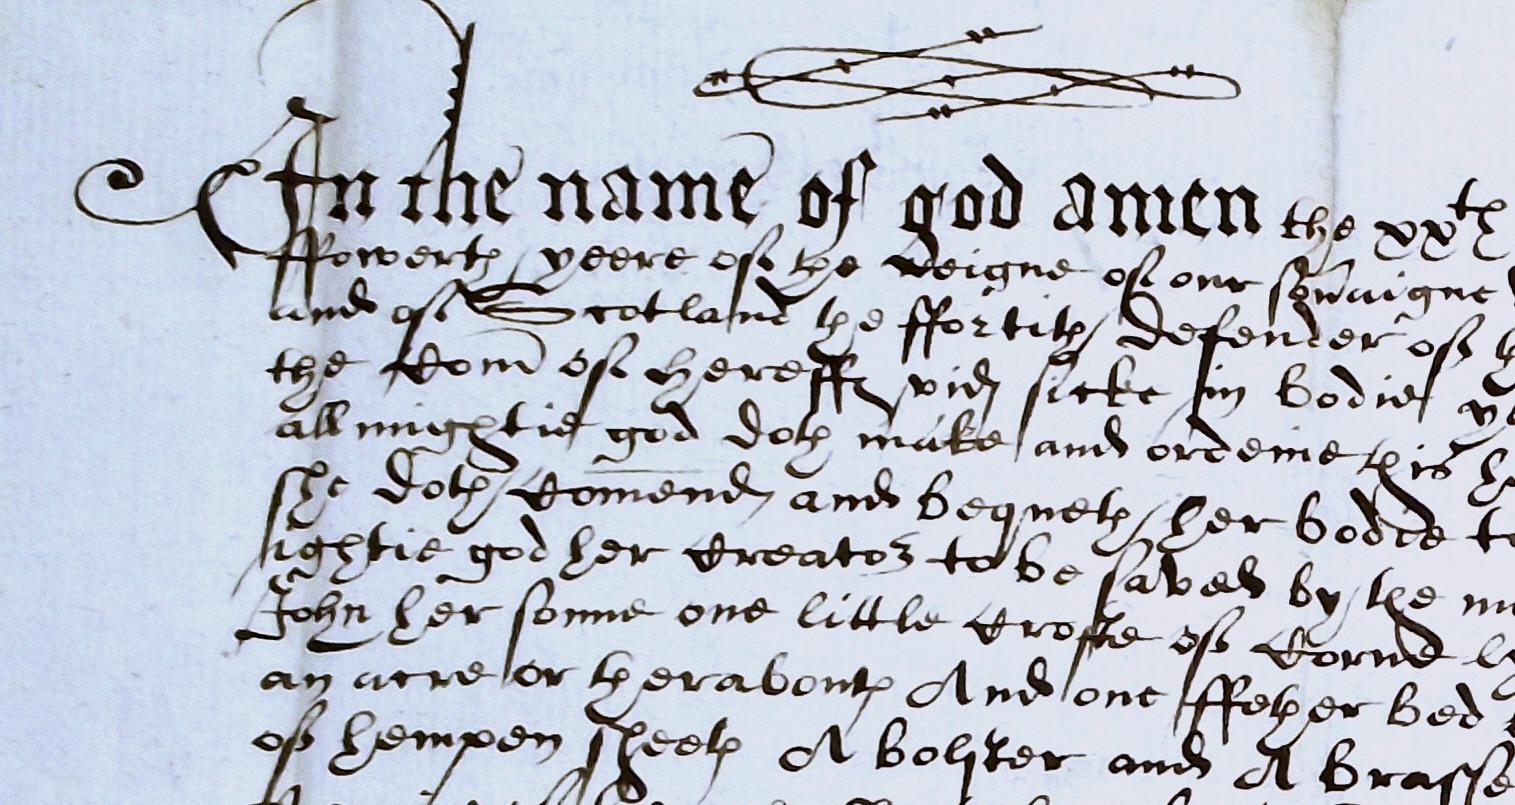 In the name of god amen the xxth
ffowerth yeere of the reigne of our sov'aigne
and of Scotland the ffortith defender of
the Com of hereff wid sicke in bodie
allmightie god doth make and ordeine this
she doth Comend and bequeth her bodie to
ightie god her Creator to be saved by the
John her sonne one little Crofte of Corne
an acre or therabouth And one ffether bed
of hempen sheeth A bolster and A brasse